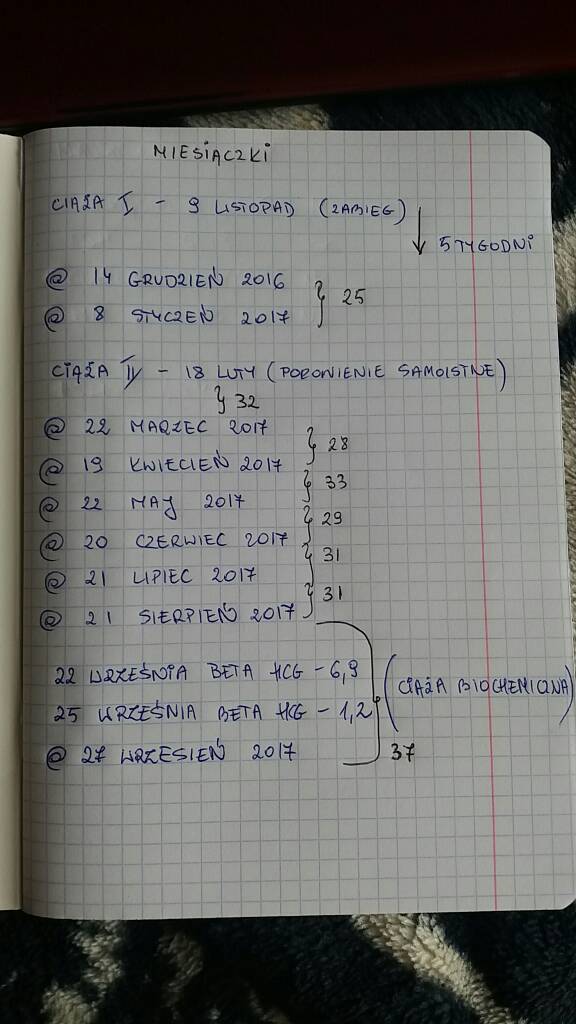 MIESIĄCZKI
CIĄŻA I - 9 LISTOPAD (ZABIEG)
↓ 5 TYGODNI
@ 14 GRUDZIEŃ 2016
} 25
@ 8 STYCZEŃ 2017
CIĄŻA II - 18 LUTY (PORONIENIE SAMOISTNE)
} 32
@ 22 MARZEC 2017
} 28
@ 19 KWIECIEŃ 2017
} 33
@ 22 MAJ 2017
} 29
@ 20 CZERWIEC 2017
} 31
@ 21 LIPIEC 2017
} 31
@ 21 SIERPIEŃ 2017
22 WRZEŚNIA BETA HCG - 6,9
(CIĄŻA BIOCHEMICZNA)
25 WRZEŚNIA BETA HCG - 1,2
@ 27 WRZESIEŃ 2017 37